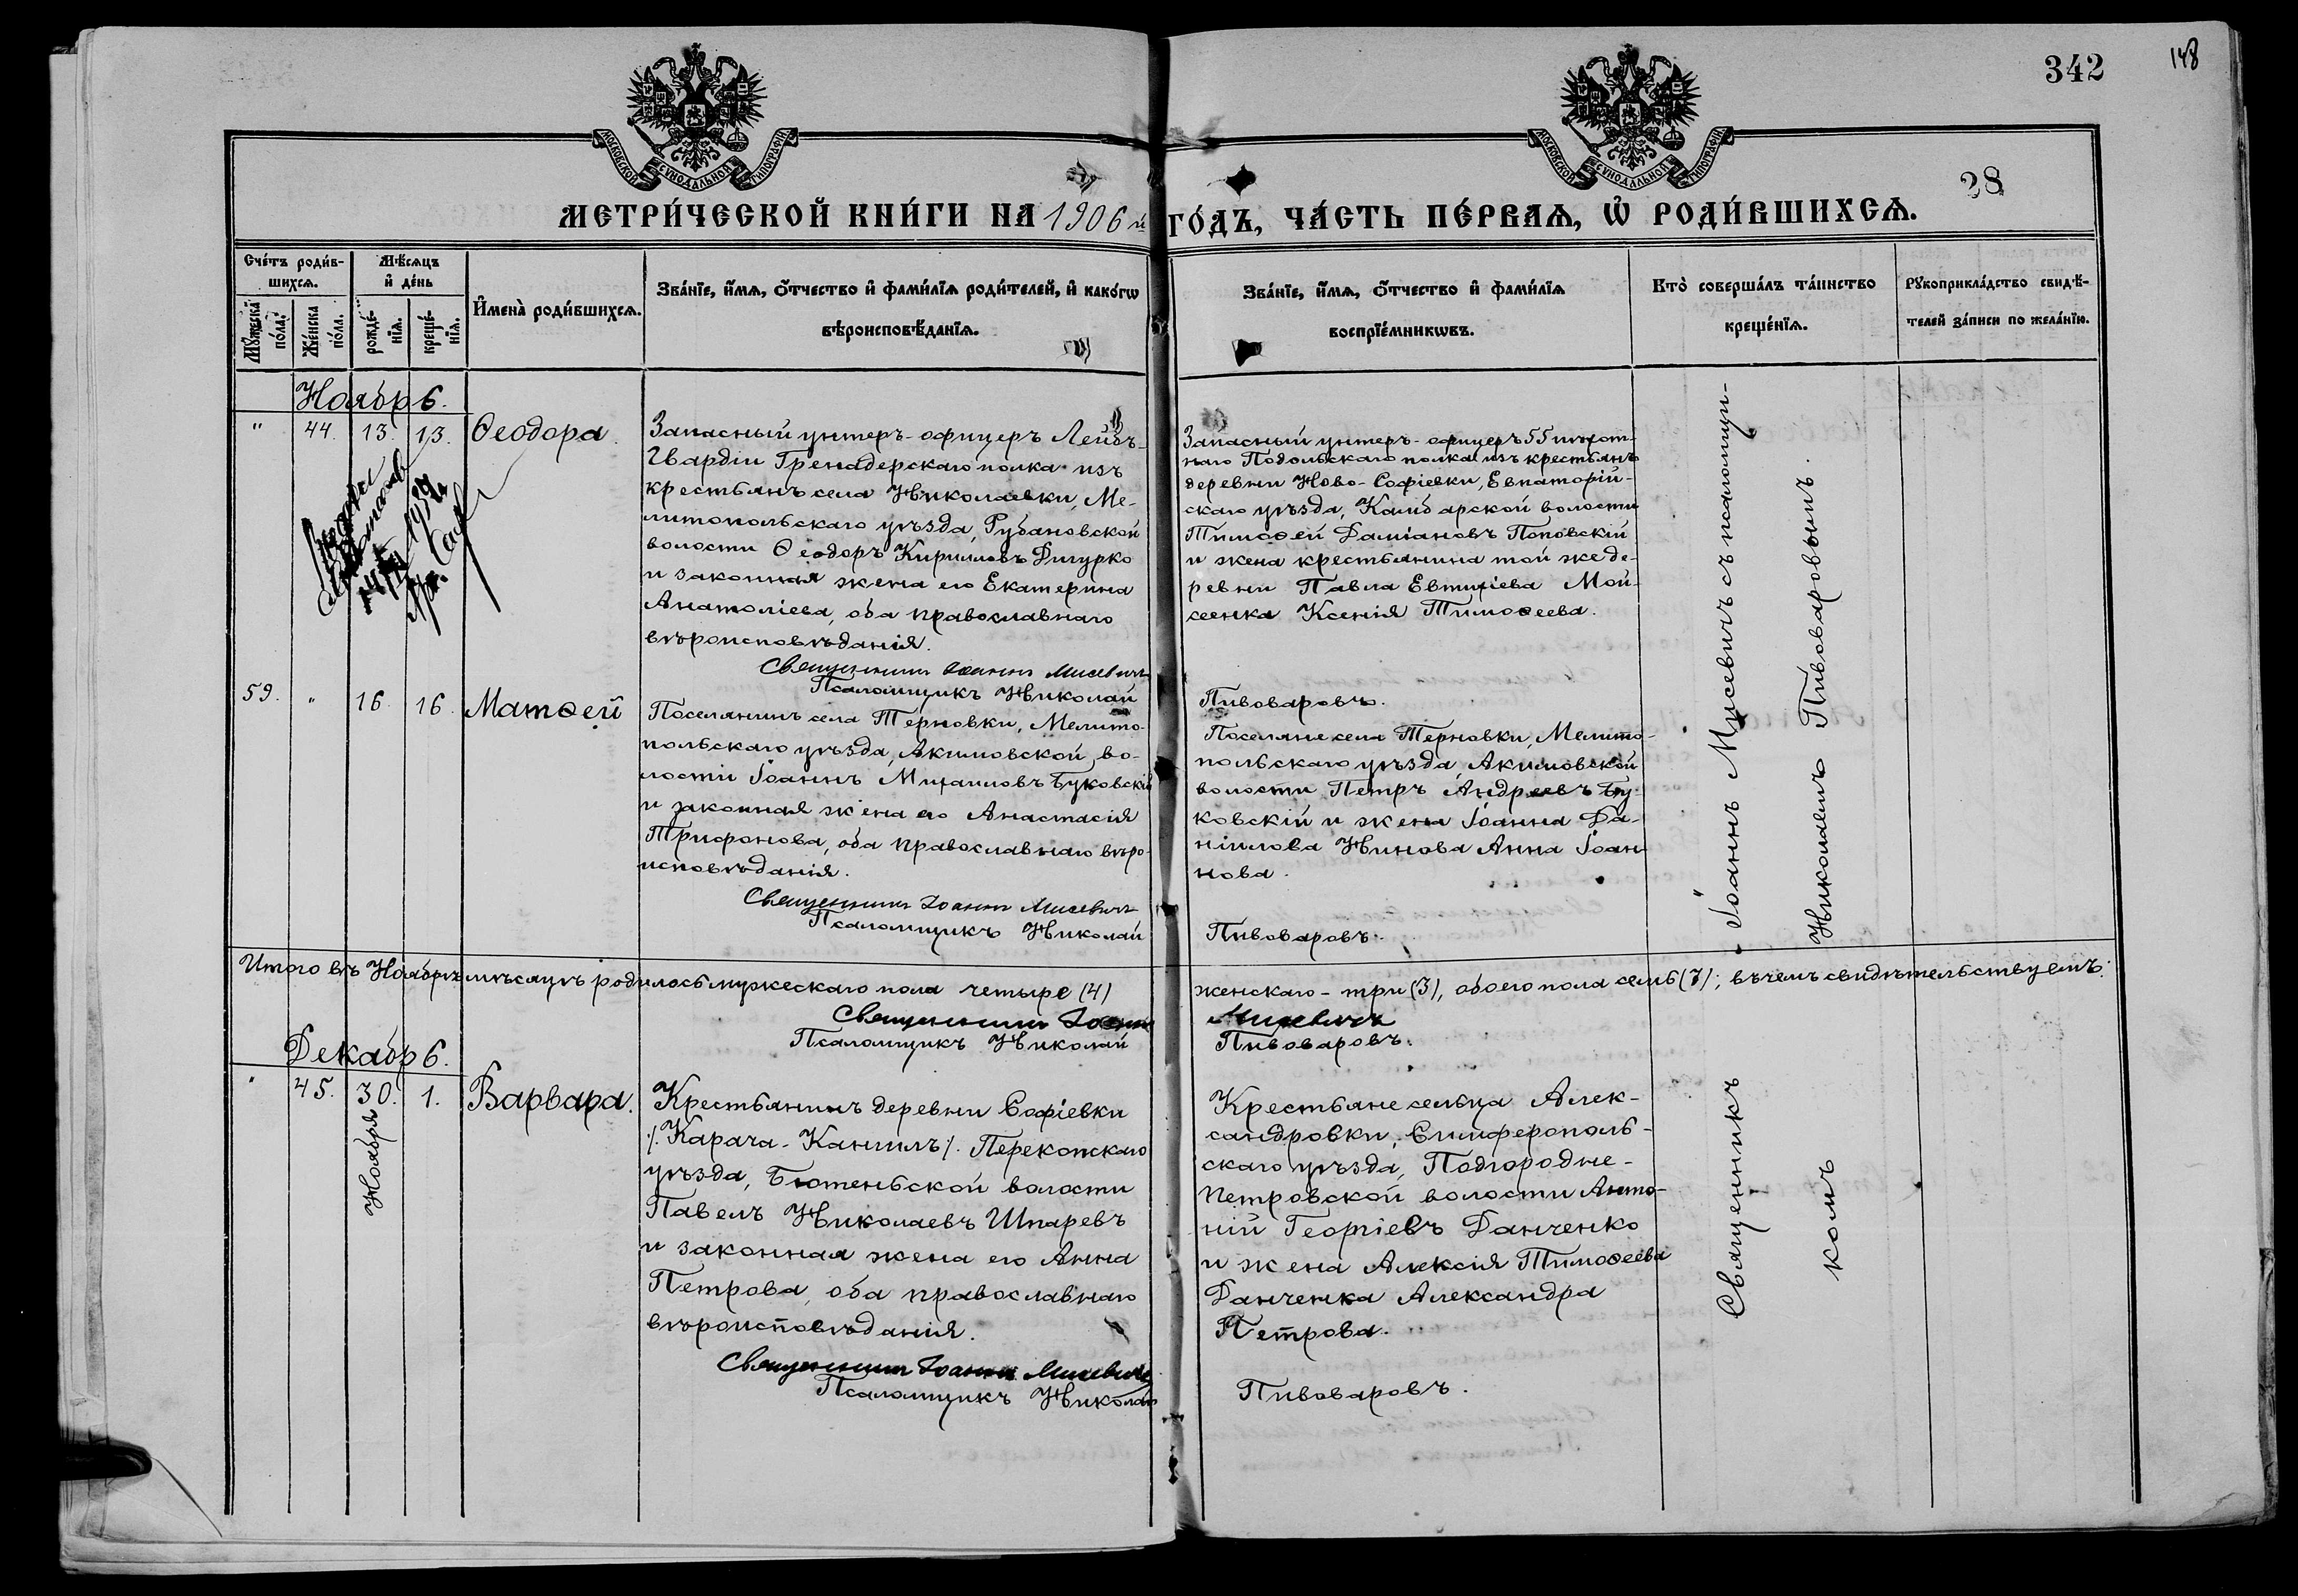 342
148
28
МОСКОВСКОЙ СѴНОДАЛЬНОЙ ТИПОГРАФІИ
МОСКОВСКОЙ СѴНОДАЛЬНОЙ ТИПОГРАФІИ
МЕТРИ́ЧЕСКОЙ КНИ́ГИ НА 1906 й ГО́ДЪ, ЧА́СТЬ ПЕ́РВАѦ, Ѡ҆ РОДИ́ВШИХСѦ.
Сче́тъ роди́в-
шихсѧ.
Мꙋ́жеска по́ла.
Же́нска по́ла.
Мѣ́сѧцъ
и҆ де́нь
рожде́-
нїѧ.
креще́-
нїѧ.
И҆мена̀ роди́вшихсѧ.
Зва́нїе, и҆́мѧ, ѻ҆́тчество и҆ фами́лїѧ роди́телей, и҆ како́гѡ
вѣроисповѣ́данїѧ.
Зва́нїе, и҆́мѧ, ѻ҆́тчество и҆ фами́лїѧ
воспрїе́мникѡвъ.
Кто̀ соверша́лъ та́инство
креще́нїѧ.
Рꙋкоприкла́дство свидѣ́-
телей за́писи по жела́нїю.
Ноябрь.
" 44. 13. 13. Ѳеодора.
Запасный унтеръ-офицеръ Лейбъ-
Гвардіи Гренадерскаго полка изъ
крестьянъ села Николаевки, Ме-
литопольскаго уѣзда, Рубановской
волости Ѳеодоръ Кирилловъ Дигурко
и законная жена его Екатерина
Анатоліева, оба православнаго
вѣроисповѣданія.
Священникъ Іоаннъ Мисевичъ
Псаломщикъ Николай
Запасный унтеръ-офицеръ 55 пѣхот-
наго Подольскаго полка изъ крестьянъ
деревни Ново-Софіевки, Евпаторій-
скаго уѣзда, Камбарской волости
Тимоѳей Даміановъ Поповскій
и жена крестьянина той же де-
ревни Павла Евтихіева Мой-
сеенка Ксенія Тимоѳеева.
Пивоваровъ.
1939
59. " 16. 16. Матѳей
Поселянинъ села Терновки, Мелито-
польскаго уѣзда, Акимовской во-
лости Іоаннъ Михаиловъ Буковскій
и законная жена его Анастасія
Трифонова, оба православнаго вѣро-
исповѣданія.
Священникъ Іоаннъ Мисевичъ
Псаломщикъ Николай
Поселяне села Терновки, Мелито-
польскаго уѣзда, Акимовской
волости Петръ Андреевъ Бу-
ковскій и жена Іоанна Да-
ніилова Нинова Анна Іоан-
нова.
Пивоваровъ.
Итого въ Ноябрѣ мѣсяцѣ родилось мужескаго пола четыре (4) женскаго - три (3), обоего пола семь (7); въ чемъ свидѣтельствуемъ:
Священникъ Іоаннъ Мисевичъ
Псаломщикъ Николай Пивоваровъ.
Декабрь.
" 45. 30. Ноября 1. Варвара.
Крестьянинъ деревни Софіевки
/. Карача-Кангилъ /. Перекопскаго
уѣзда, Бютеньской волости
Павелъ Николаевъ Шпаревъ
и законная жена его Анна
Петрова, оба православнаго
вѣроисповѣданія.
Священникъ Іоаннъ Мисевичъ
Псаломщикъ Николай
Крестьяне сельца Алек-
сандровки, Симферополь-
скаго уѣзда, Подгородне-
Петровской волости Анто-
ній Георгіевъ Данченко
и жена Алексія Тимоѳеева
Данченка Александра
Петрова.
Пивоваровъ.
Священникъ Іоаннъ Мисевичъ съ псаломщи-
комъ Николаемъ Пивоваровымъ.